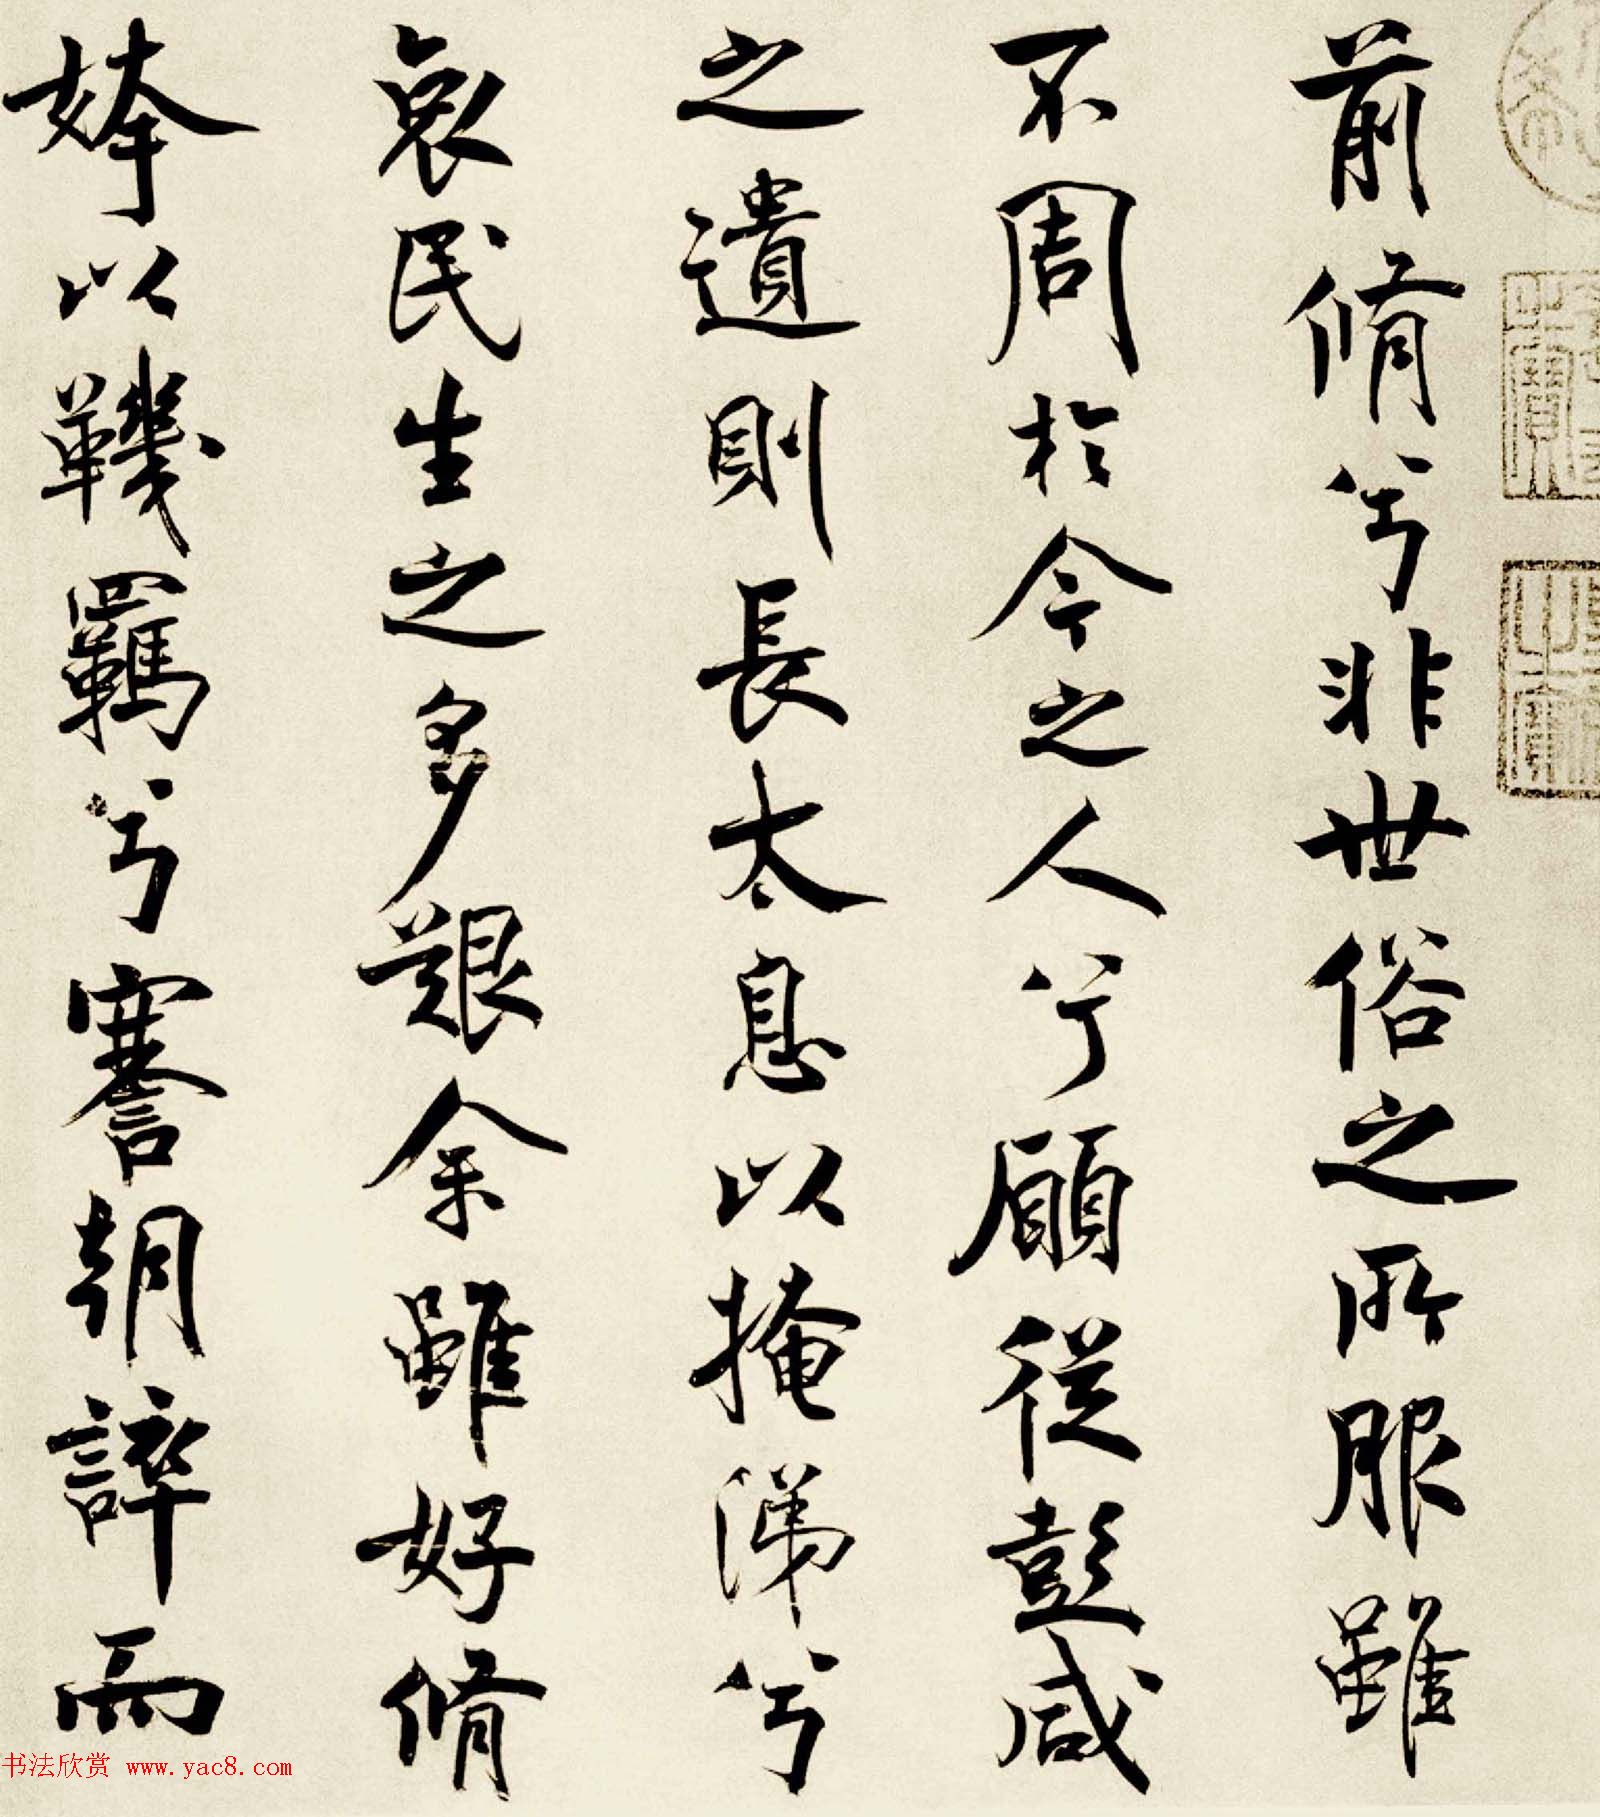 前脩兮非世俗之所服雖
不周於今之人兮願從彭咸
之遺則長太息以掩涕兮
哀民生之多艱余雖好脩
姱以鞿羈兮謇朝誶而
书法欣赏 www.yac8.com